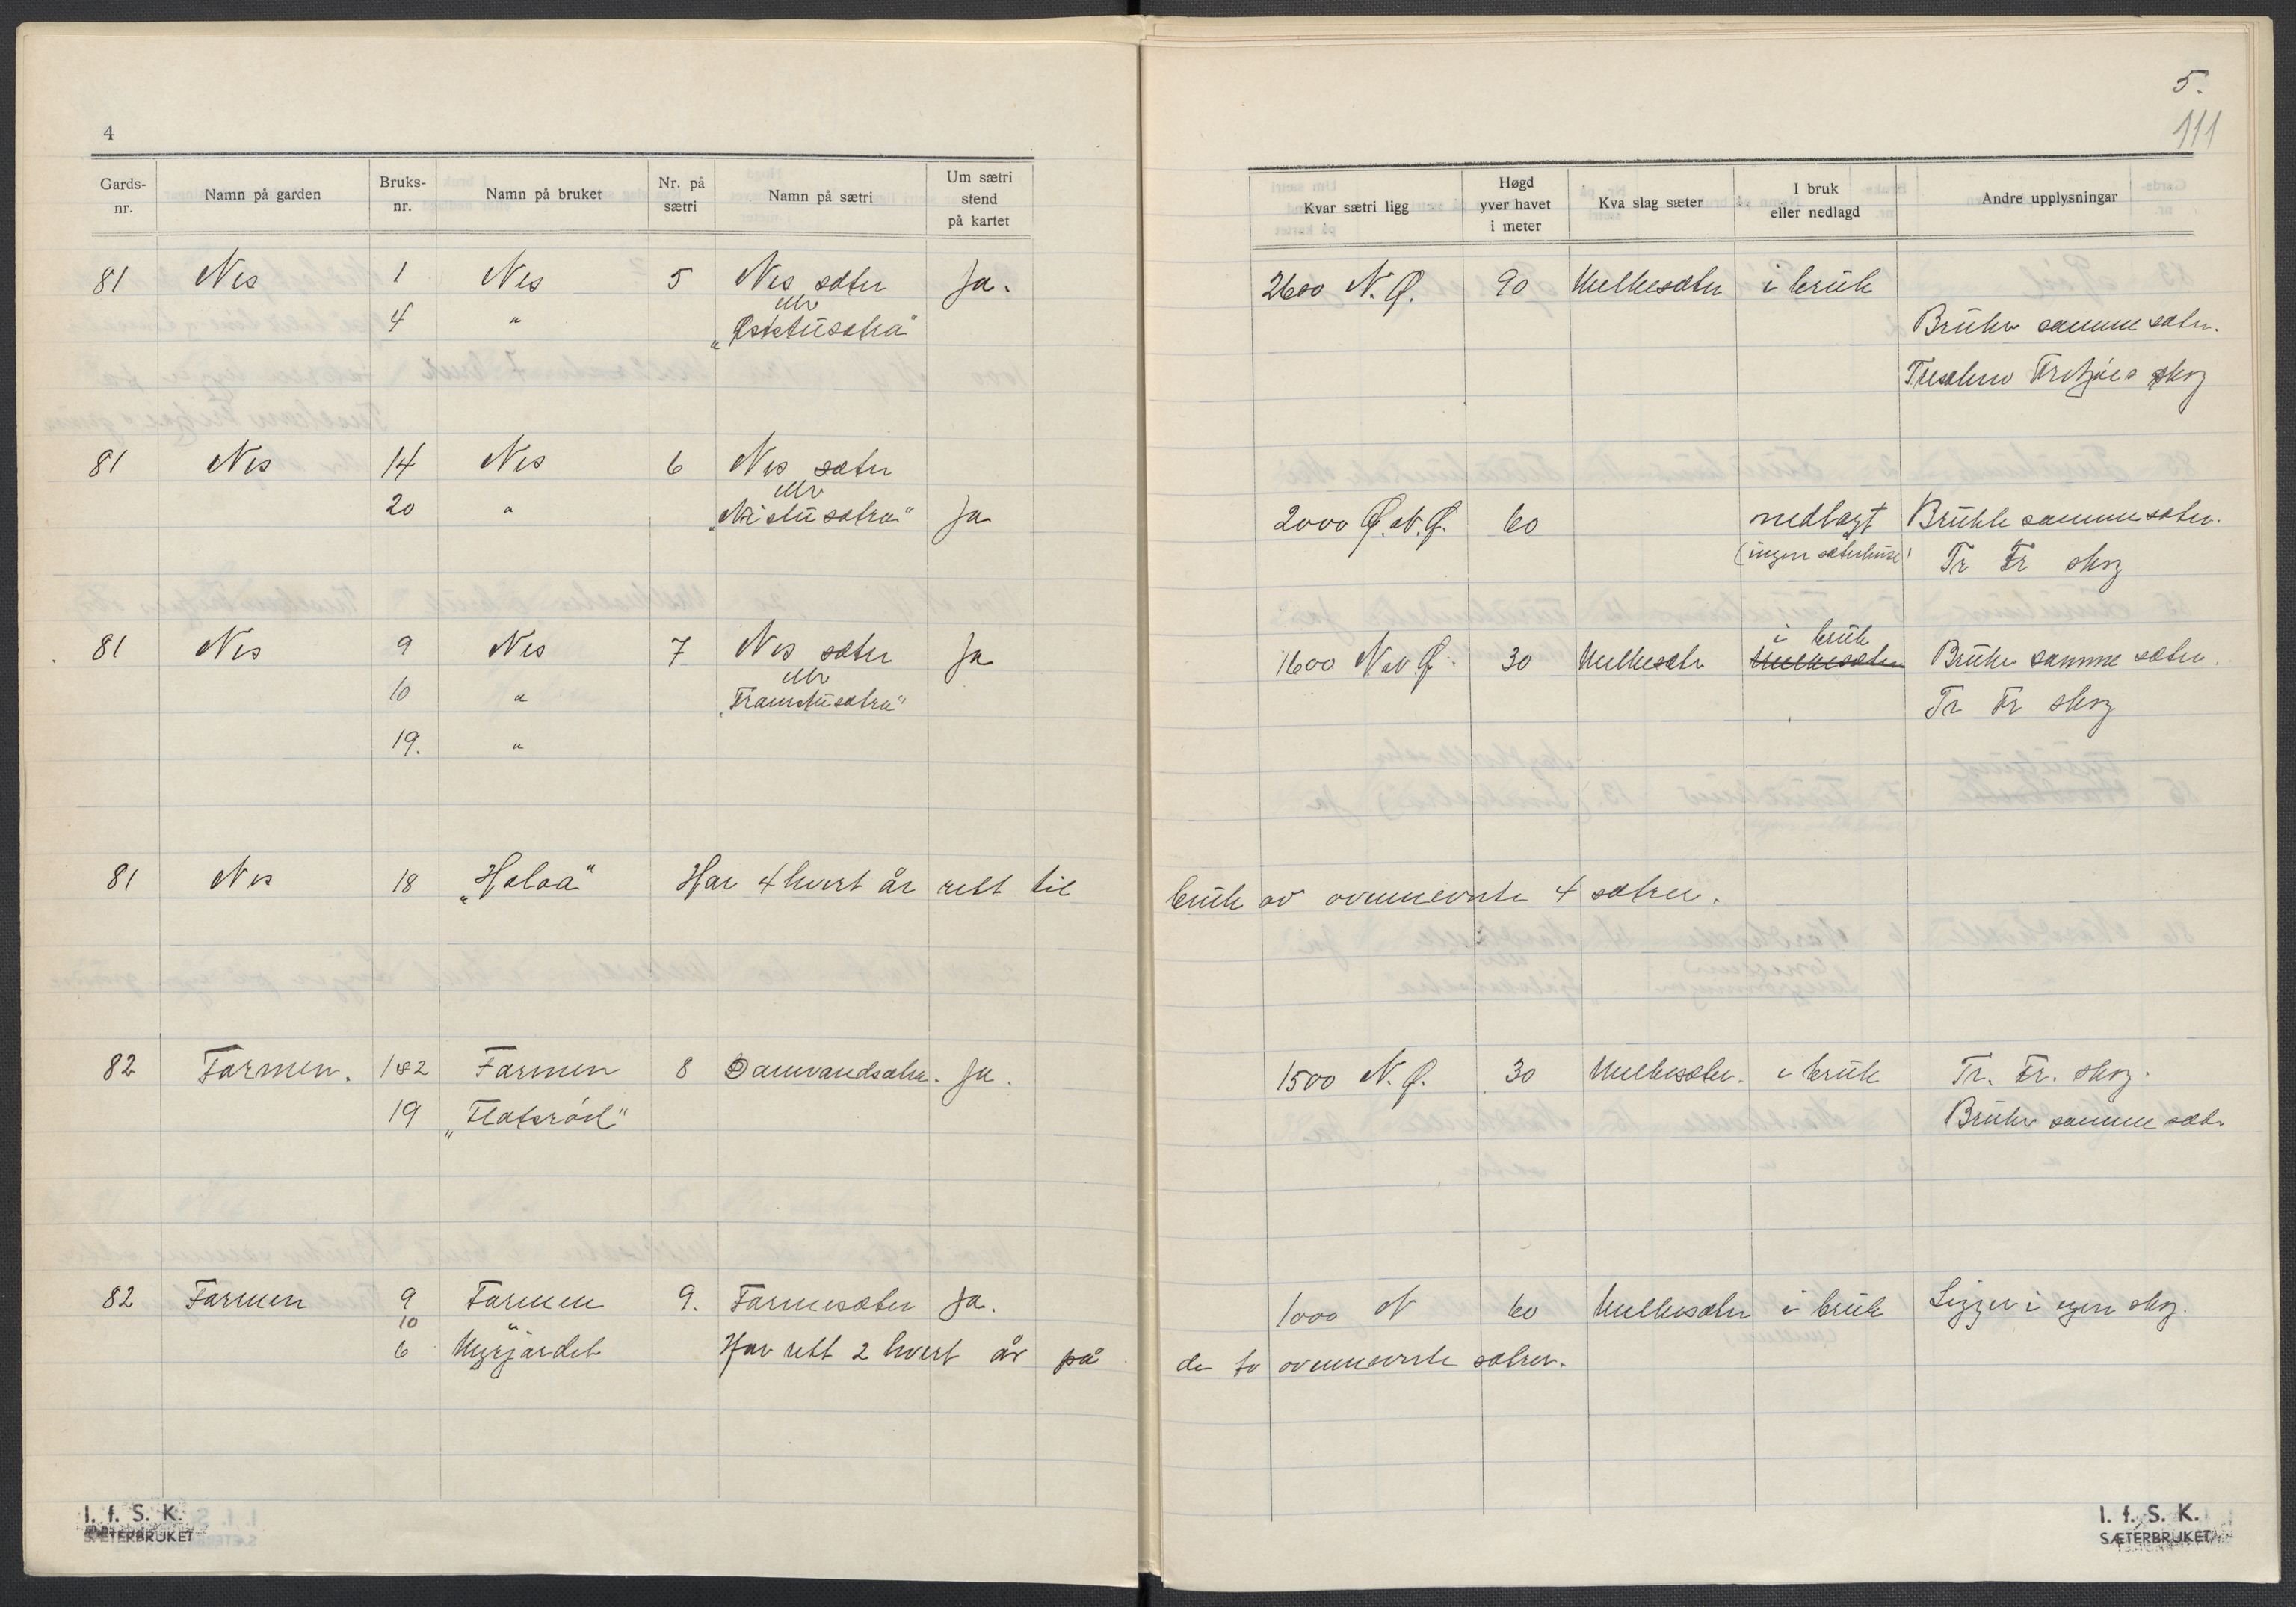 4
Gards-nr. Namn på garden Bruks-nr. Namn på bruket Nr. på sætri Namn på sætri Um sætri stend på kartet
81 Nes 1 Nes 5 Nes sæter Ja.
eller
4 " „Øststusætra"
81 Nes 14 Nes 6 Nes sæter
eller
20 " „Nistusætra" Ja
81 Nes 9 Nes 7 Nes sæter Ja
eller
10 " „Framstusætra"
19. "
81 Nes 18 „Holoa" Har 4 hvert år rett til
82 Farmen. 1&2 Farmen 8 Damvandsætra. Ja.
19 „Flatsrød"
82 Farmen 9 Farmen 9. Farmesæter Ja.
10 "
6 Myrjordet Har rett 2 hvert år på
I. f. S. K.
SÆTERBRUKET
5.
111
Kvar sætri ligg Høgd yver havet i meter Kva slag sæter I bruk eller nedlagd Andre upplysningar
2600 N.Ø. 90 Melkesæter i bruk
Bruker samme sæter.
Treschow Fritzøes skog
2000 Ø.at.N.Ø. 60 nedlagt Brukte samme sæter.
(ingen sæterhuse) Tr Fr skog
i bruk
1600 N av Ø. 30 Melkesæter Melkesæter Bruker samme sæter.
Tr Fr skog
bruk av ovennevnte 4 sætrer.
1500 N.Ø. 30 Melkesæter. i bruk Tr. Fr. skog.
Bruker samme sæt.
1000 N 60 Melkesæter i bruk Ligger i egen skog.
de to ovennevnte sætrer.
I. f. S. K.
SÆTERBRUKET